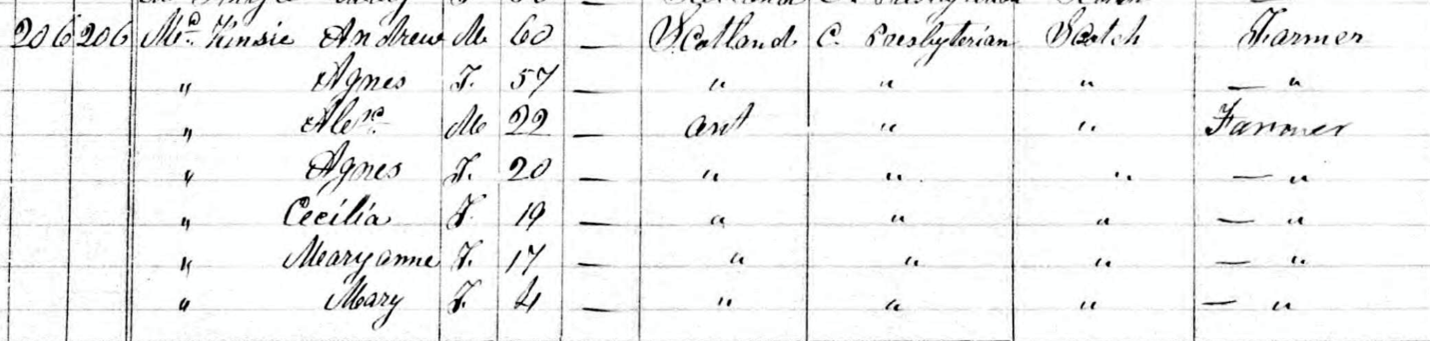 206 206 Mc Kinsie Andrew M 60 — Scotland C. Presbyterian Scotch Farmer
" Agnes F. 57 — " " " — "
" Alexr. M 22 — Ont " " Farmer
" Agnes F. 20 — " " " — "
" Cecilia F. 19 — " " " — "
" Maryanne F. 17 — " " " — "
" Mary F. 4 — " " " — "